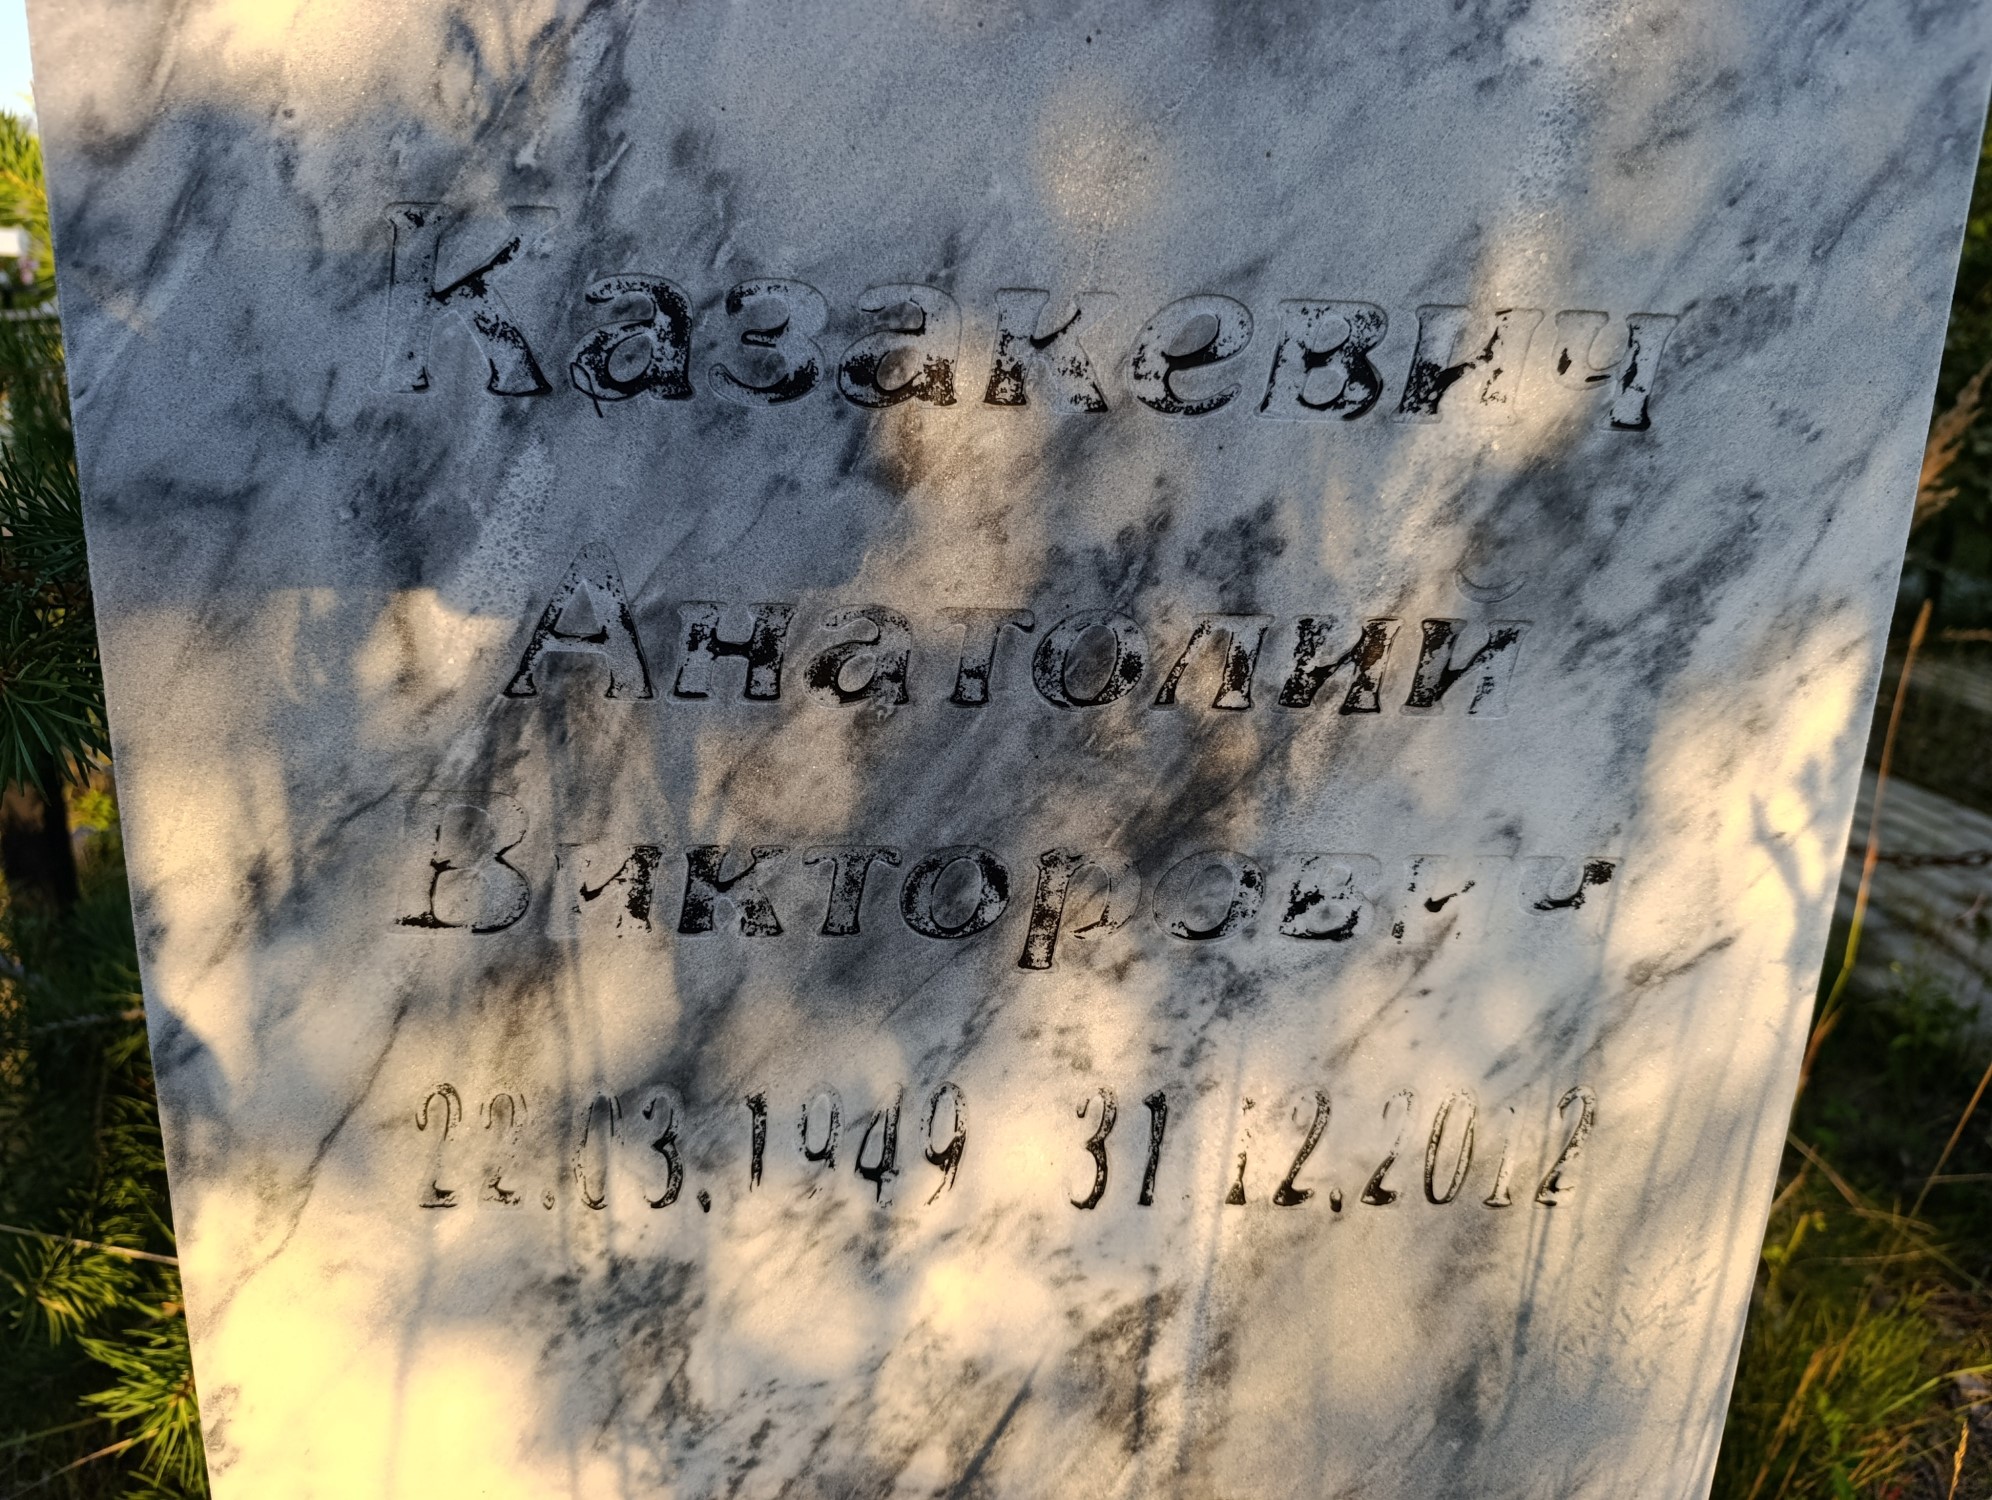 Казакевич
Анатолий
Викторович
22.03.1949 31.12.2012